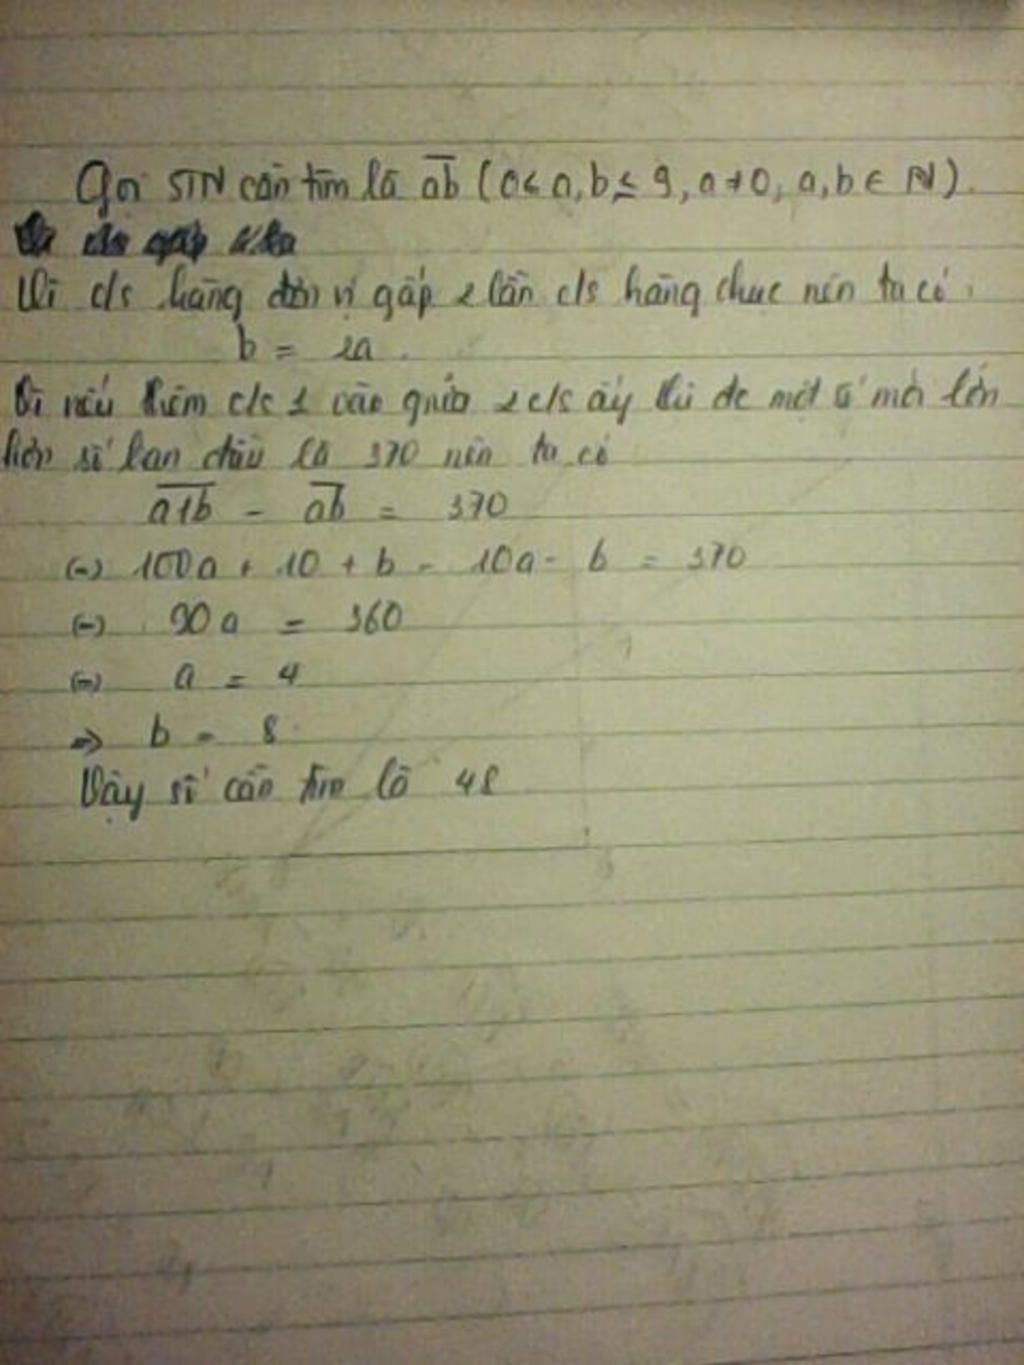 Gọi STN cần tìm là ab (0 < a, b ≤ 9, a ≠ 0, a, b ∈ N).
Vì c/s hàng đơn vị gấp 2 lần c/s hàng chục nên ta có:
b = 2a.
Vì nếu thêm c/s 1 vào giữa 2 c/s ấy thì đc một số mới lớn
hơn số ban đầu là 370 nên ta có
a1b - ab = 370
(=) 100a + 10 + b - 10a - b = 370
(=) 90a = 360
(=) a = 4
=> b = 8
Vậy số cần tìm là 48